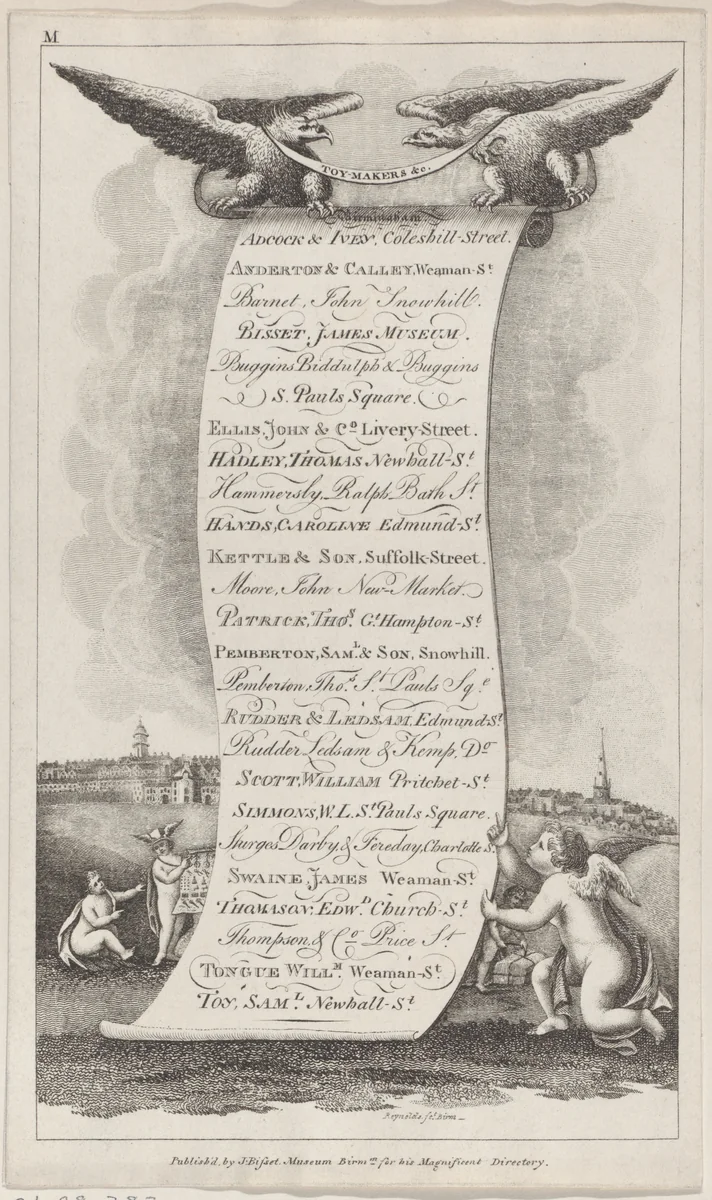 M
TOY-MAKERS &c.
Birmingham
ADCOCK & IVEY, Coleshill-Street.
ANDERTON & CALLEY, Weaman-St.
Barnet, John Snowhill.
BISSET, JAMES MUSEUM.
Buggins Biddulph & Buggins
S. Pauls Square.
ELLIS, JOHN & Co. Livery-Street.
HADLEY, THOMAS Newhall-St.
Hammersly, Ralph Bath St.
HANDS, CAROLINE Edmund-St.
KETTLE & SON, Suffolk-Street.
Moore, John New-Market.
PATRICK, THOs. Gt. Hampton-St.
PEMBERTON, SAML. & SON, Snowhill.
Pemberton, Thos. St. Pauls Sqe.
RUDDER & LEDSAM, Edmund-St.
Rudder Ledsam & Kemp, Do.
SCOTT, WILLIAM Pritchet-St.
SIMMONS, W. L. St. Pauls Square.
Sturges Darby, & Fereday, Charlotte S.
SWAINE, JAMES Weaman-St.
THOMASON, EDWD. Church-St.
Thompson, & Co. Price St.
TONGUE WILLM. Weaman-St.
TOY, SAML. Newhall-St.
Reynolds, sc. Birm
Publish'd, by J. Bisset. Museum Birmm. for his Magnificent Directory.